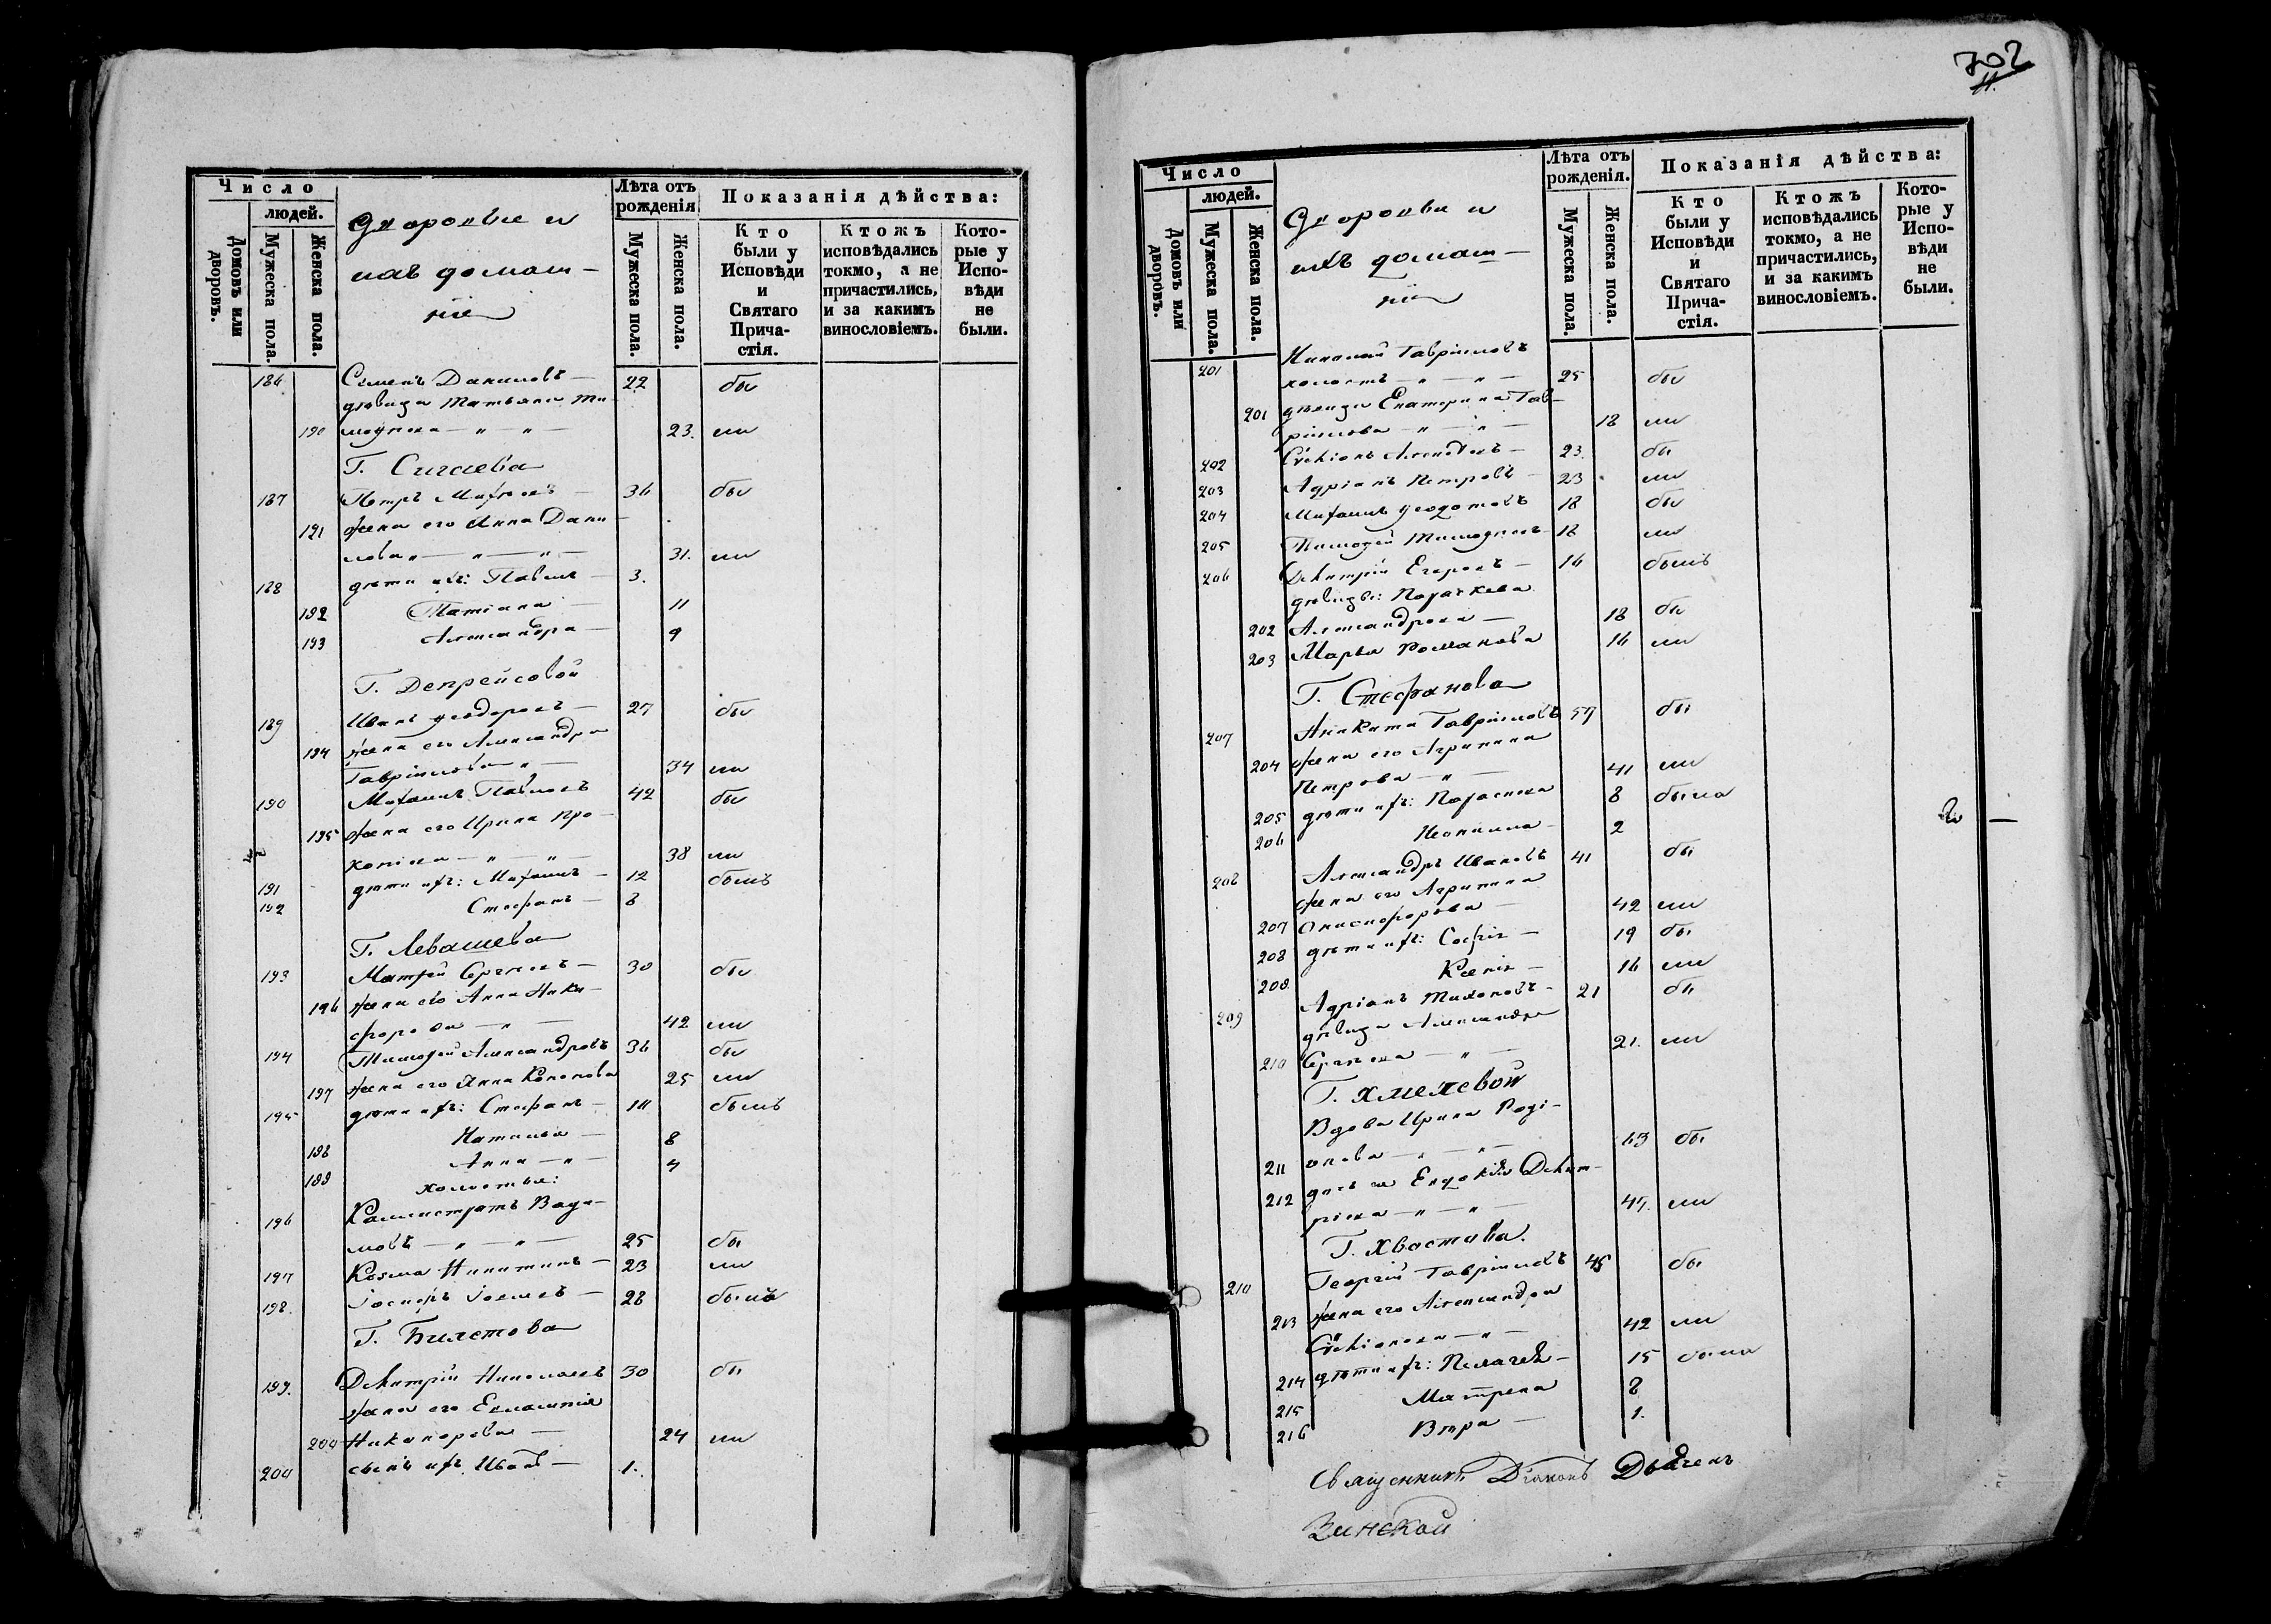 Число
людей.
Домовъ или дворовъ.
Мужеска пола.
Женска пола.
Дворовые и
ихъ домаш-
ніе
Лѣта отъ рожденія
Мужеска пола.
Женска пола.
Показанія дѣйства:
Кто были у Исповѣди и Святаго Прича-стія.
Ктожъ исповѣдались токмо, а не причастились, и за какимъ винословіемъ.
Кото-рые у Испо-вѣди не были.
186 Семенъ Даниловъ — 22 бы
дѣвица Татьяна Ти-
190 моѳеева — „ — „ — 23. ли
Г. Сигаева
187 Петръ Матвеевъ — 36 бы
191 жена его Анна Дани-
лова „ — „ — „ — 31. ли
188 дѣти ихъ: Павелъ — 3.
192 Татіана — 11
193 Александра — 9
Г. Депрейсовой
189 Иванъ Ѳеодоровъ — 27 бы
194 жена его Александра
Гавріилова „ — 34 ли
190 Михаилъ Павловъ 42 бы
195 жена его Ирина Про-
копіева — „ — „ — 38 ли
191 дѣти ихъ: Михаилъ — 12 былъ
192 Стефанъ — 8
Г. Левашева
193 Матѳей Сергеевъ — 30 бы
196 жена его Анна Ники-
форова — „ — 42 ли
194 Тимоѳей Александровъ 36 бы
197 жена его Анна Кононова 25 ли
195 дѣти ихъ: Стефанъ — 11 былъ
198 Наталья — 8
199 Анна — „ — 4
холостые:
196 Каллистратъ Вади-
мовъ — „ — „ — 25 бы
197 Козма Никитинъ — 23 ли
198. Іосифъ Іовлевъ — 28 былъ
Г. Билетова
199. Димитрій Николаевъ 30 бы
жена его Евлампія
200 Никанорова — 24 ли
200 сынъ ихъ Иванъ — 1.
702
11.
Число
людей.
Домовъ или дворовъ.
Мужеска пола.
Женска пола.
Дворовые и
ихъ домаш-
ніе
Лѣта отъ рожденія.
Мужеска пола.
Женска пола.
Показанія дѣйства:
Кто были у Исповѣди и Святаго Прича-стія.
Ктожъ исповѣдались токмо, а не причастились, и за какимъ винословіемъ.
Кото-рые у Испо-вѣди не были.
Николай Гавріиловъ
201 холостъ — „ — „ — 25 бы
201 дѣвица Екатерина Гав-
ріилова — „ — „ — 18 ли
202 — 23. бы
203 Адріанъ Петровъ — 23 ли
204 Михаилъ Ѳеодотовъ 18 бы
205 Тимоѳей Тимоѳеевъ 18 ли
206 Димитрій Егоровъ — 16 былъ
дѣвицы: Параскева
202 Александрова — 18 бы
203 Марья Романова 16 ли
Г. Стефанова
207 Аникита Гавріиловъ 57 бы
204 жена его Агрипина
Петрова — „ — 41 ли
205 дѣти ихъ: Параскева 8 была
206 Неонилла — 2
208 Александръ Ивановъ 41 бы
жена его Агрипина
207 Онисифорова — 42 ли
208 дѣти ихъ: Софія — 19 бы
208 Ксенія — 16 ли
209 Адріанъ Тихоновъ — 21 бы
дѣвица Александра
210 Сергеева — „ — 21. ли
Г. Хмелевой
Вдова Ирина Роді-
211 онова — „ — „ — 63 бы
212 дочь ея Евдокія Димит-
ріева — „ — „ — 45. ли
Г. Хвостова.
210 Георгій Гавріиловъ 45 бы
213 жена его Александра
— „ — 42 ли
214 дѣти ихъ: Пелагея — 15 была
215 Матрена 8
216 Вѣра — 1.
Священникъ Діаконъ